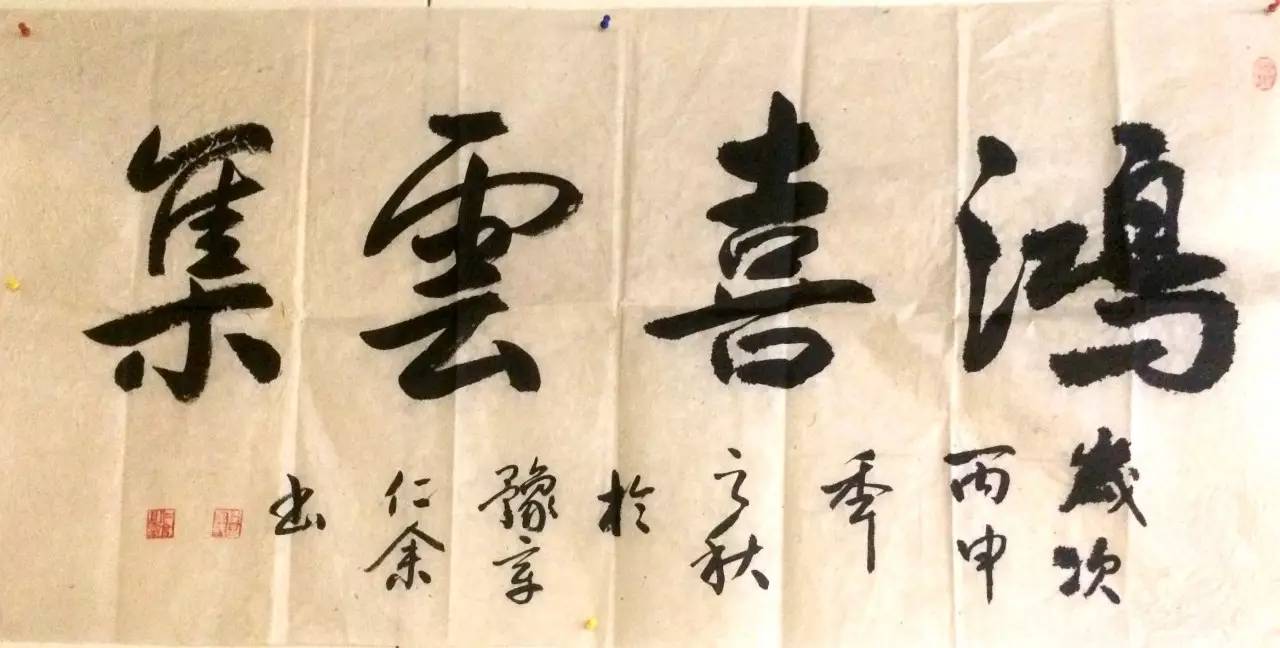 鴻喜雲集
歲次
丙申
年
之秋
於
豫章
仁余
書